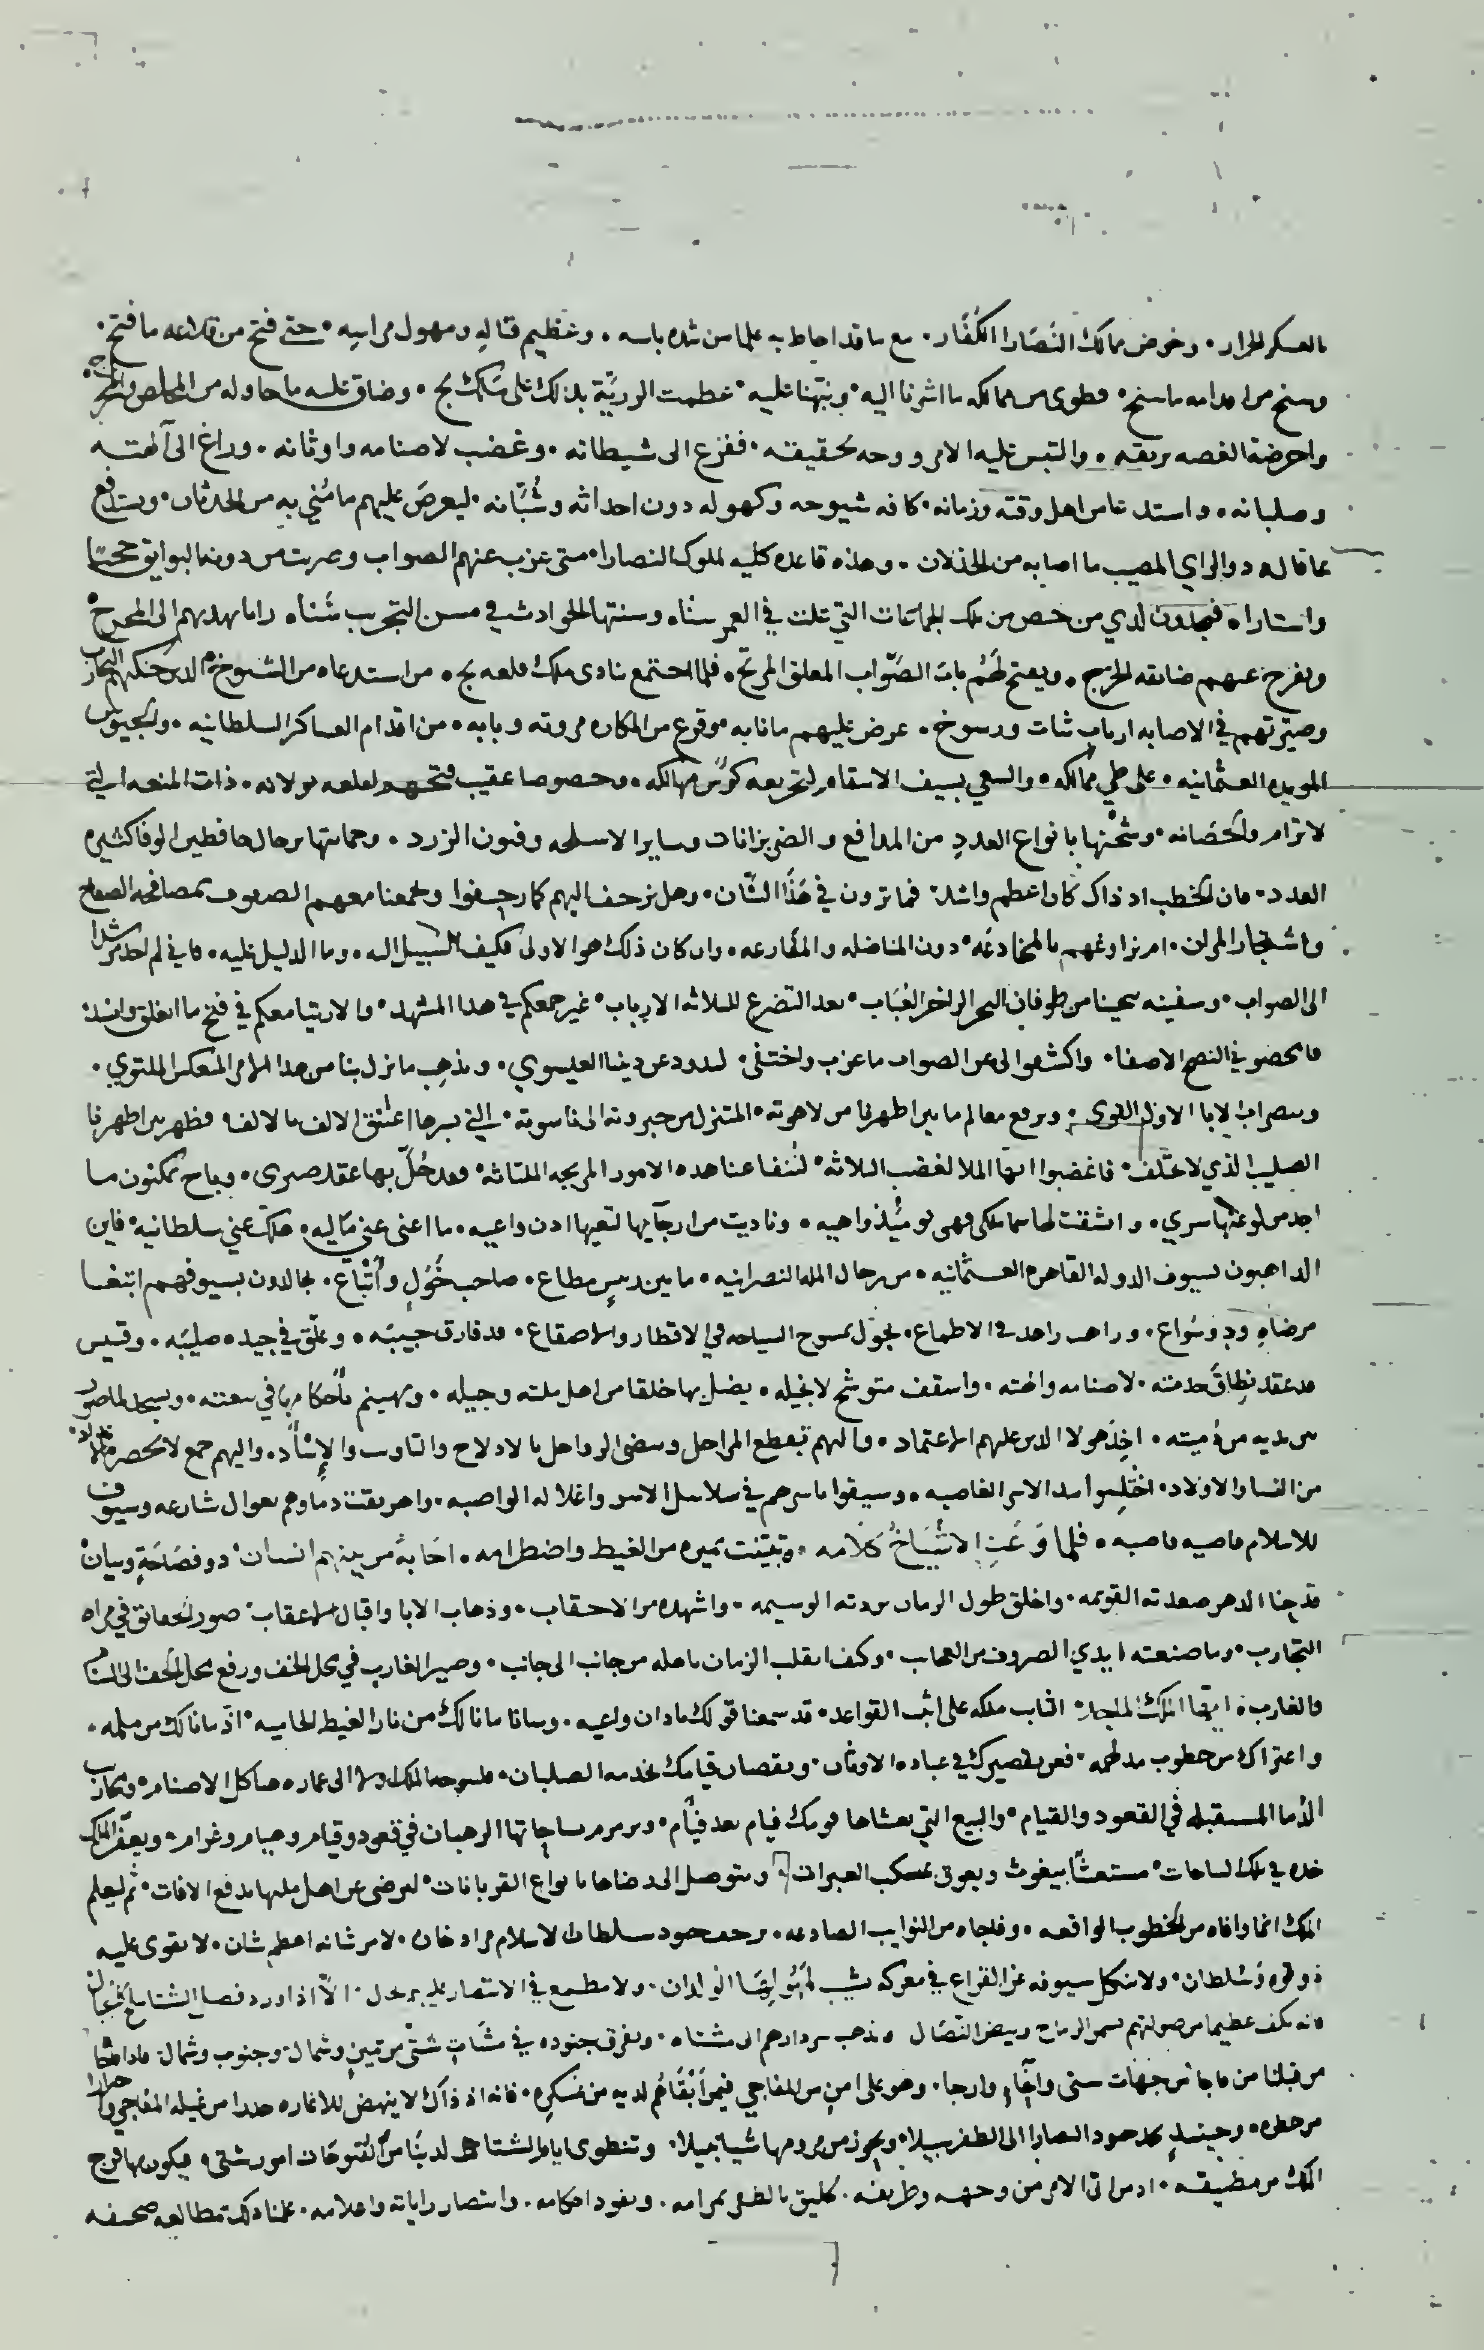 بالعسكر الجرار، وخوض ممالك النصارا الكفار، مع ما قد احاط به علما من شده باسه، وعظيم قتاله ومهول مراسه، حتى فتح من قلاعه ما فتح،
وسنح من اقدامه ما سنح، وطوى من ممالكه ما اشرنا اليه، ونبهنا عليه، عظمت الرزية بذلك على ملك بج، وضاق عليه ما حاوله من المخلص والمخرج،
واجرضه الغصه بريقه، والتبس عليه الامر ووجه تحقيقه، ففزع الى شيطانه، وغضب لاصنامه واوثانه، وراغ الى آلهته
وصلبانه، واستدعا من اهل وقته وزمانه، كافه شيوخه وكهوله دون احداثه وشبانه، ليعرض عليهم ما مني به من الحدثان، ويستدفع
بما قاله ذو الراي المصيب ما اصابه من الخذلان، وهذه قاعده كليه لملوك النصارا، متى عزب عنهم الصواب وضربت من دونها لبوايق حجبا
واستارا، فيجدون لدي من خص من تلك الجماعات التي علت في العمر سنا، وسنتها الحوادث في مسن التجريب سنا، راءا يهديهم الى المخرج
ويفرج عنهم ضايقه الحرج، ويفتح لهم باب الصواب المعلق المرتج، فلما اجتمع بنادى ملك قلعه بج، من استدعاه من الشيوخ، الذين حنكتهم التجارب
وصيرتهم في الاصابه ارباب ثبات ورسوخ، عرض عليهم ما نابه، ووقوع من المكاره مروته وبابه، من اقدام العساكر السلطانيه، والجيوش
المويده العثمانيه، على طي ممالكه، والسعي بسيف الانتقام لتجريعه كوس مهالكه، وخصوصا عقيب فتحهم لقلعه يولانه، ذات المنعه التي
لا ترام والحصانه، وشحنها بانواع العدد من المدافع والضربزانات وساير الاسلحه وفنون الزرد، وحمايتها برجال حافظين الوفا كثيره
العدد، فان الخطب اذ ذاك كان اعظم واشد، فما ترون في هذا الشان، وهل نزحف اليهم كما زحفوا ونجمعنا معهم الصفوف بمصافحه الصفاح
واشتجار المران، ام نراوغهم بالمخادعه، دون المناضله والمقارعه، وان كان ذلك هو الاولى فكيف السبيل اليه، وما الدليل عليه، فاني لم اجد مرشدا
الى الصواب، وسفينه تنجينا من طوفان البحر الزاخر العباب، بعد التضرع للثلاثه الارباب، غير جمعكم في هذا المشهد، والارتيا معكم في فتح ما انغلق وانسد
فامحضو في النصح الاصفا، واكشفوا لي عن الصواب ما عزب واختفى، لنذود عن ديننا العيسوي، ونذهب ما نزل بنا من هذا الامر المنعكس الملتوي،
وننصر اب الابا الاول القوى، ونرفع معالم ما بين اظهرنا من لاهوته، المتنزل من جبروته الى ناسوته، التي بسرها اعتنق الالف بالالف، وظهر بين اظهرنا
الصليب الذي لا يختلف، فاغضبوا ايها الملا لغضب الثلاثه، لننفا عنا هذه الامور المريجه الملتاثه، فقد حل بها عقد صبرى، وباح بمكنون ما
اجد من لوعتها سري، وانشقت لها سما ملكي فهي يومئذ واهيه، وناديت من ارجآيها لتعيها اذن واعيه، ما اغنى عني ماليه، هلك عني سلطانيه، فاين
الذاهبون لسيوف الدوله القاهره العثمانيه، من رجال المله النصرانيه، ما بين رئيس مطاع، صاحب خول واتباع، يجالدون بسيوفهم ابتغا
مرضاه ود وسواع، وراهب زاهد في الاطماع، يجول بمسوح السياحه في الاقطار والاصقاع، قد فارق حبيبه، وعلق في جيده صليبه، وقسيس
قد عقد نطاق خدمته، لاصنامه والهته، واسقف متوشح لانجيله، يضل بها خلقا من اهل ملته وجيله، ويهينم باحكام ما في بيعته، ويسجد لما صور
من يديه من دميته، اخذ هولا الذين عليهم الاعتماد، واليهم تقطع المراحل وتنضى الرواحل بالادلاج والتاويب والاسآد، واليهم جمع لا تحصر
من النسا والاولاد، اختلسوا بيد الاسر الغاصبه، وسيقوا باسرهم في سلاسل الاسر واغلاله الواصبه، واهريقت دماوهم بعوال شارعه وسيوف
للاسلام قاضيه قاضبه، فلما وعت الاشياخ كلامه، وتيقنت تميزه من الغيظ واضطرامه، اجابه من بينهم انسان، ذو فصاحة وبيان
قد حنا الدهر صعدته القويمه، واخلق طول الزمان بردته الوسيمه، واشهده مر الاحقاب، وذهاب الابا واقبال الاعقاب، صور الحقائق في مراه
التجارب، وما صنعته ايدي الصروف من العجاب، وكيف انقلب الزمان باهله من جانب الى جانب، وصير الغارب في محل الخف ورفع محل الخف الى السنام
والغارب، ايها الملك الممجد، الثابت ملكه على اثبت القواعد، قد سمعنا قولك باذان واعيه، وسانا ما نالك من نار الغيظ الحاميه، اذ ما نالك من ملمه،
واعتراك من خطوب مدلهمه، فعن تقصيرك في عباده الاوثان، ونقصان قيامك بخدمه الصلبان، فليتوجه الملك اولا الى عماره هياكل الاصنام، ومحارب
الدما المستقبله في القعود والقيام، والبيع التي يغشاها قومك فيام بعد فيام، ويزمزم بساحاتها الرهبان في قعود وقيام وهيام وغرام، ويعفر الملك
خده في تلك الساحات، مستغيثا بيغوث ويعوق بمسكب العبرات، ويتوصل الى رضاها بانواع القربانات، لترضى عن اهل ملتها بدفع الافات، ثم ليعلم
الملك انما وافاه من الخطوب الواقعه، وفاجاه من النوايب الصادعه، من زحف جنود سلطان الاسلام مراد خان، لامر شانه اعظم شان، لا يقوى عليه
ذو قوه وسلطان، ولا تكل سيوفه عن القراع في معركه يشيب لهولها الولدان، ولا مطمع في الانتصار عليه بحال، الا اذا ورد فصل الشتا
فانه يكف عظيما من صولتهم بسمر الرماح وبيض النصال، ويذهب سردارهم الى مشتاه، وتفرق جنوده في مشات شتى من يمين وشمال، وجنوب وشمال، فاذا
من قبلنا من فاجا من جهات شتى وانحاء وارجا، وهو على امن من المفاجي فيمن ابقاهم لديه من عسكره، فانه اذ ذاك لا ينهض للاغاره حذرا من غيله المفاجي
من خطره، وحينئذ تجد جنود النصارا الى الظفر سبيلا، وتحوز من مرومها شيا جميلا، وتنطوى ايام الشتا لدينا من الفتوحات امور شتى، فيكون بها فرج
الملك من مضيقه، اذ من اتى الامر من وجهه وطريقه، خليق بالظفر بمرامه، ونفوذ احكامه، وانتصار راياته واعلامه، علمنا ذلك بمطالعه صحيفه